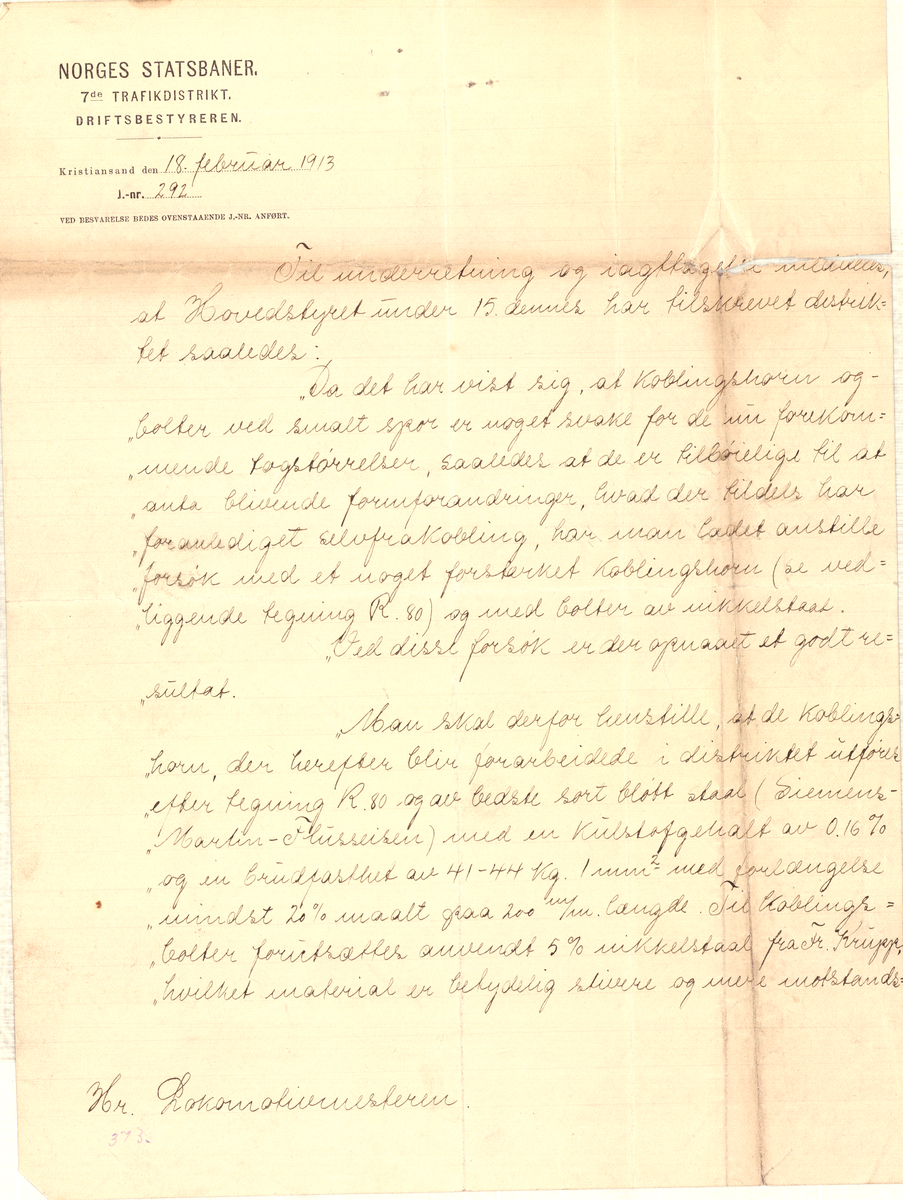 NORGES STATSBANER.
7de TRAFIKDISTRIKT.
DRIFTSBESTYREREN.
Kristiansand den 18. februar 1913
J.-nr. 292
VED BESVARELSE BEDES OVENSTAAENDE J.-NR. ANFØRT.
Til underretning og iagttagelse meddeles,
at Hovedstyret under 15. dennes har tilskrevet distrik=
tet saaledes:
„Da det har vist sig, at koblingshorn og -
„bolter ved smalt spor er noget svake for de nu forekom=
„mende togstørrelser, saaledes at de er tilbøielige til at
„anta blivende formforandringer, hvad der tildels har
„foranlediget selvfrakobling, har man ladet anstille
„forsøk med et noget forstærket koblingshorn (se ved=
„liggende tegning R. 80) og med bolter av nikkelstaal.
„Ved disse forsøk er der opnaaet et godt re=
„sultat.
„Man skal derfor henstille, at de koblings=
„horn, der herefter blir forarbeidede i distriktet utføres
„efter tegning R. 80 og av bedste sort bløtt staal (Siemens-
„Martin-Flusseisen) med en kulstofgehalt av 0.16%
„og en brudfasthet av 41-44 kg. / mm² med forlængelse
„mindst 20% maalt paa 200 m/m. længde. Til koblings=
„bolter forutsættes anvendt 5% nikkelstaal fra Fr. Krupp,
„hvilket material er betydelig stivere og mere motstands=
Hr. Lokomotivmesteren.
373.